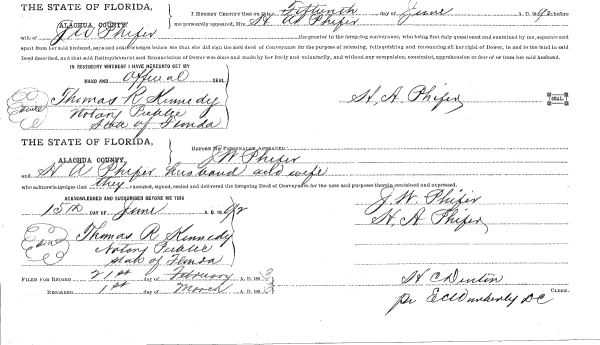 THE STATE OF FLORIDA,
ALACHUA COUNTY.
I HEREBY CERTIFY that on this Fifteenth day of June A. D. 1892 before
me personally appeared, Mrs. H A Phifer
wife of J W Phifer the grantor in the foregoing conveyance, who being first duly questioned and examined by me, separate and
apart from her said husband, says and acknowledges before me that she did sign the said deed of Conveyance for the purpose of releasing, relinquishing and renouncing all her right of Dower, in and to the land in said
Deed described, and that said Relinquishment and Renunciation of Dower was done and made by her freely and voluntarily, and without any compulsion, constraint, apprehension or fear of or from her said husband.
IN TESTIMONY WHEREOF I HAVE HEREUNTO SET MY
HAND AND official SEAL
Thomas R Kennedy
Notary Public
State of Florida
H. A. Phifer
SEAL.
THE STATE OF FLORIDA,
ALACHUA COUNTY.
BEFORE ME PERSONALLY APPEARED
J. W Phifer
and H A Phifer husband and wife
who acknowledges that they executed, signed, sealed and delivered the foregoing Deed of Conveyance for the uses and purposes therein contained and expressed.
ACKNOWLEDGED AND SUBSCRIBED BEFORE ME THIS
15th DAY OF June A. D. 1892
J. W. Phifer
H. A Phifer
Thomas R. Kennedy
Notary Public
State of Florida
FILED FOR RECORD 21st day of February A. D. 1893
RECORDED 1st day of March A. D. 1893
H C Denton
CLERK.
pr E C Wimberly DC